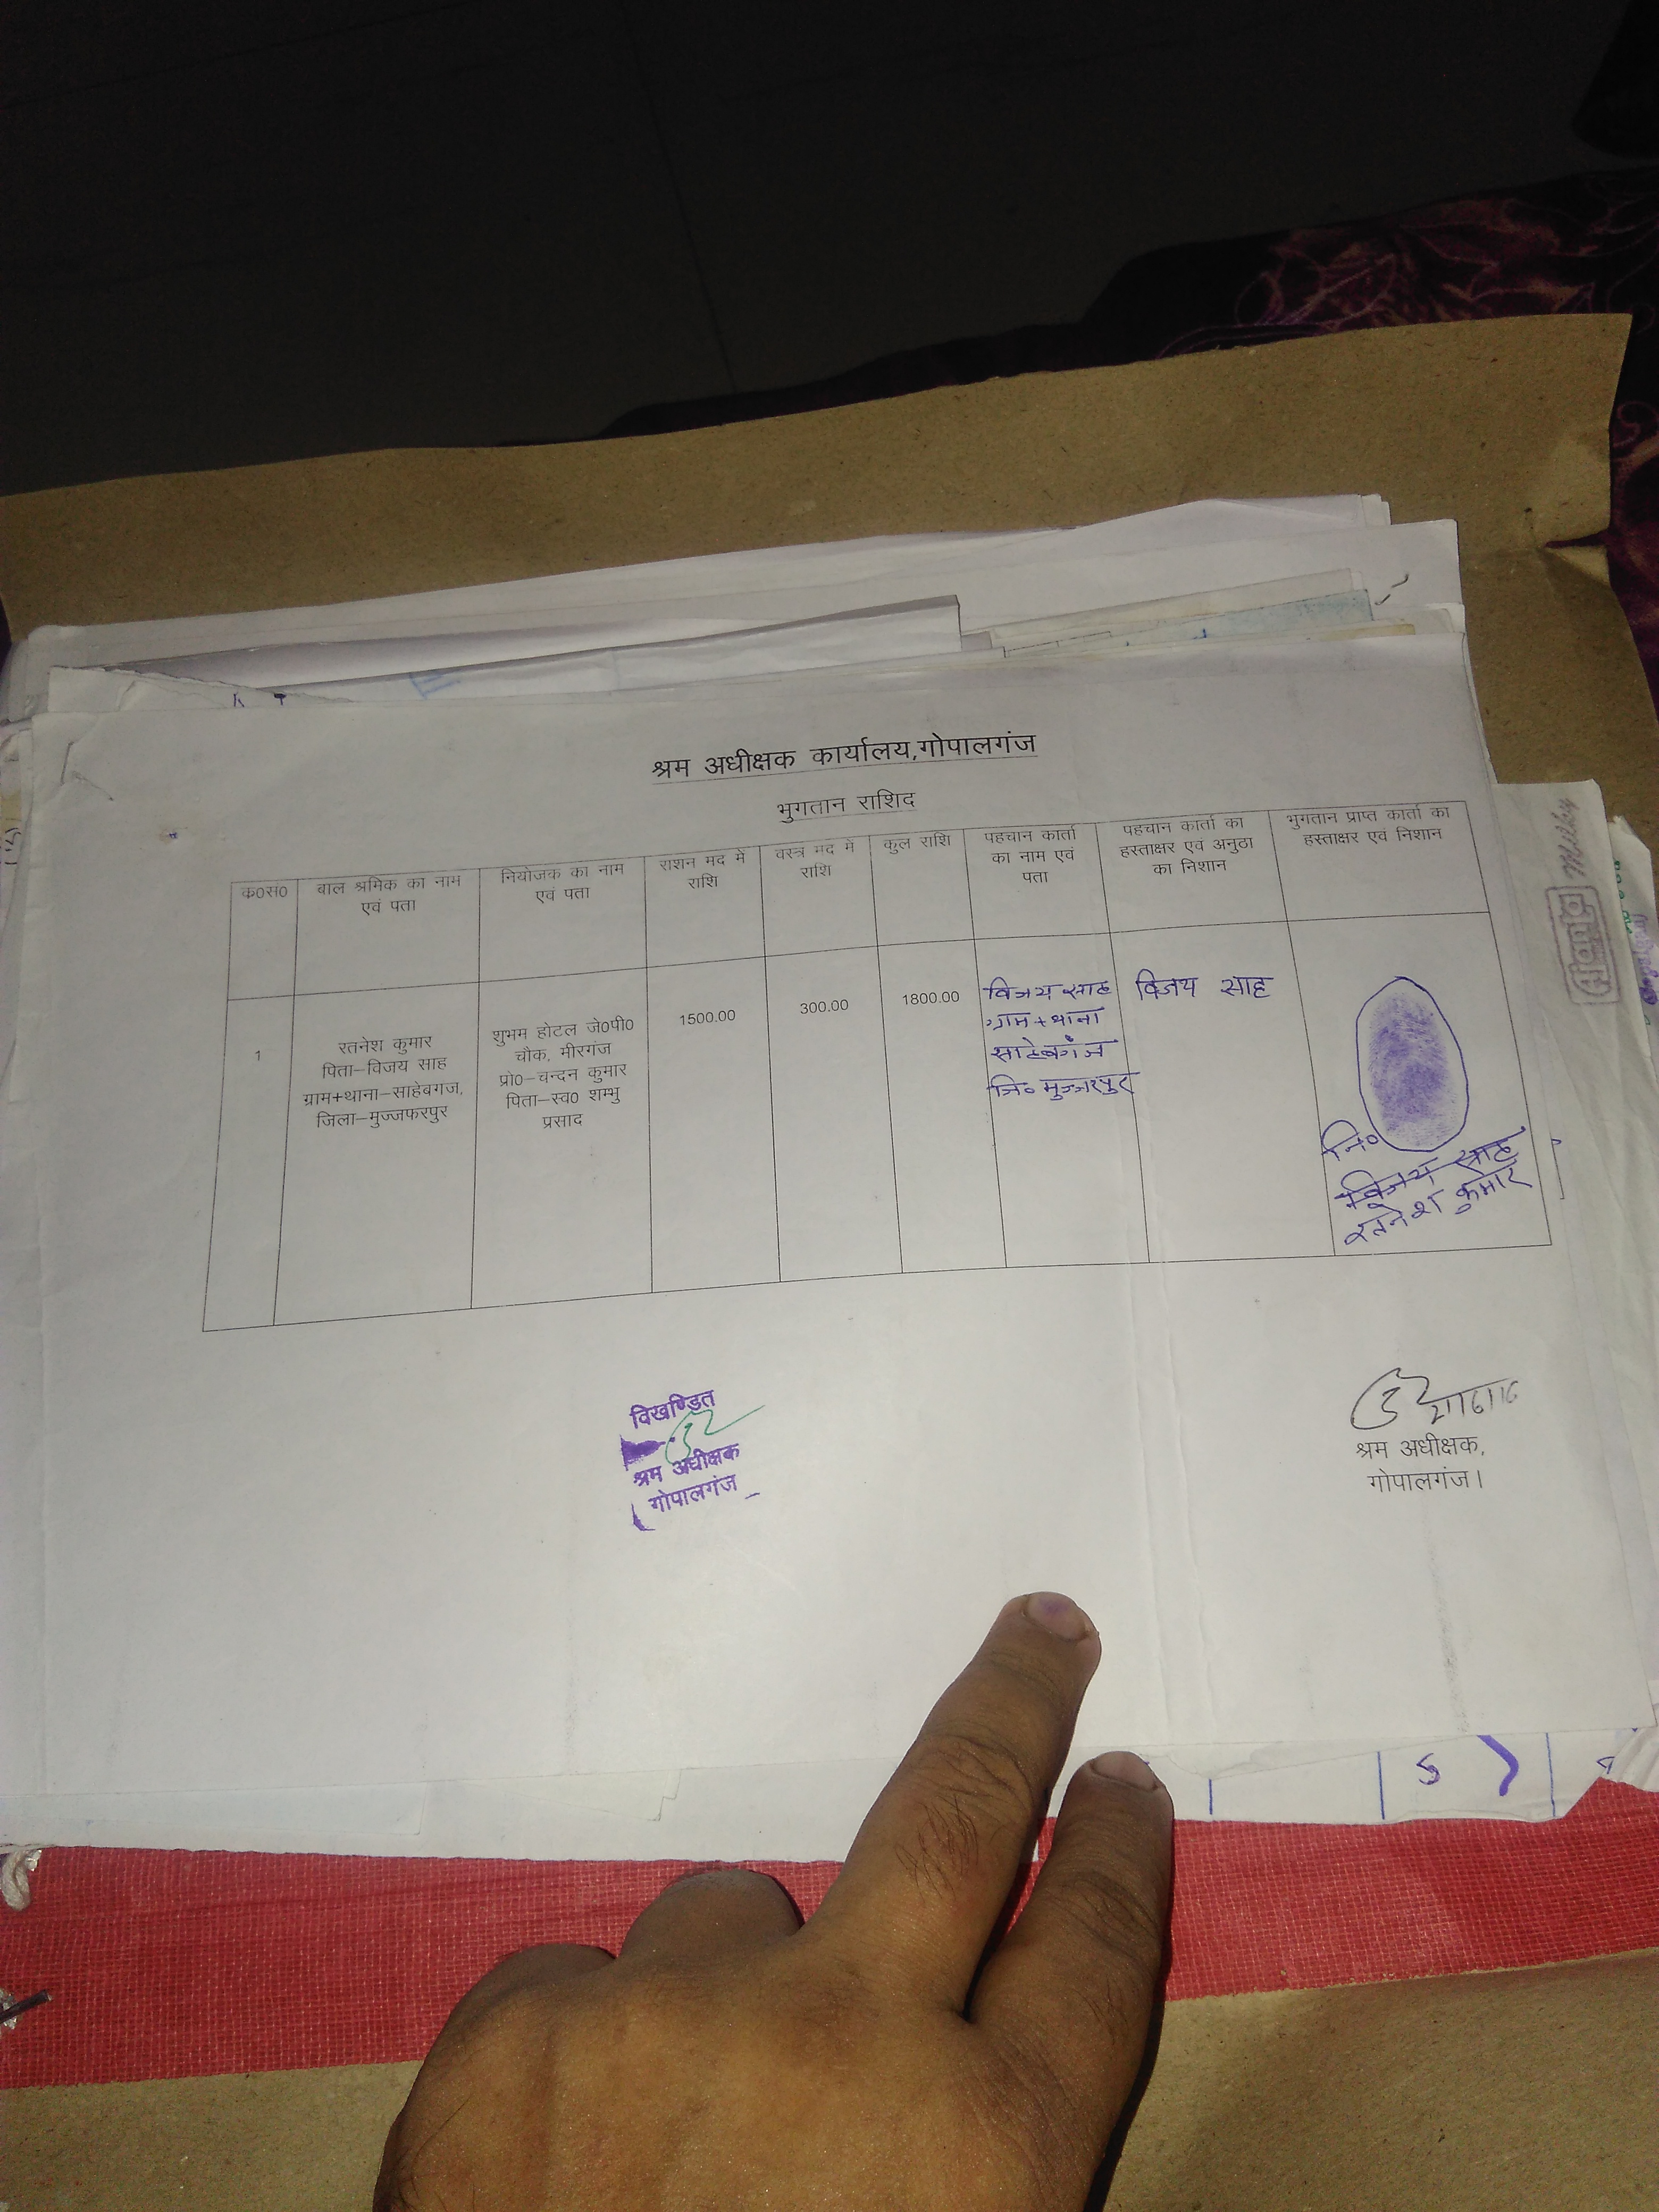 श्रम अधीक्षक कार्यालय,गोपालगंज
भुगतान राशिद
क०सं०
बाल श्रमिक का नाम
एवं पता
नियोजक का नाम
एवं पता
राशन मद में
राशि
वस्त्र मद में
राशि
कुल राशि
पहचान कार्ता
का नाम एवं
पता
पहचान कार्ता का
हस्ताक्षर एवं अनुठा
का निशान
भुगतान प्राप्त कार्ता का
हस्ताक्षर एवं निशान
1
रतनेश कुमार
पिता–विजय साह
ग्राम+थाना–साहेबगज,
जिला–मुज्जफरपुर
शुभम होटल जे०पी०
चौक, मीरगंज
प्रो०–चन्दन कुमार
पिता–स्व० शम्भु
प्रसाद
1500.00
300.00
1800.00
विजय साह
ग्राम+थाना
साहेबगंज
जि० मुज्जरपुर
विजय साह
नि०
विजय साह
रतनेश कुमार
विखण्डित
श्रम अधीक्षक
गोपालगंज
श्रम अधीक्षक,
गोपालगंज।
Milky